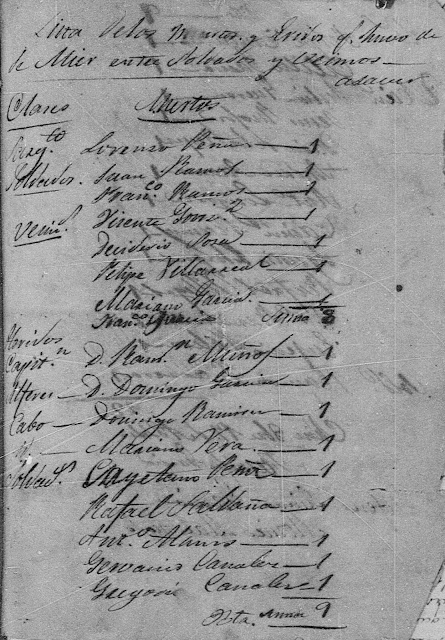 Lista de los Muertos y Eridos q.e huvo de
de Mier entre Soldados y Vecinos
asaver
Clases Muertos
Sarg.to Lorenzo Peña — 1
Soldados Juan Ramos — 1
Fran.co Ramos — 1
Vecin.s Vicente Gonz.z — 1
Deciderio Sosa — 1
Felipe Villarreal — 1
Mariano Garcia — 1
Fran.co Garcia Suma 8
Heridos
Capit.n D. Ram.n Muños — 1
Alferes — D. Domingo Garcia — 1
Cabo — Domingo Ramires — 1
Mariano Vera — 1
Soldad.s Cayetano Peña — 1
Rafael Saldaña — 1
Ant.o Alanis — 1
Gervacio Canales — 1
Gregorio Canales — 1
Suma 9